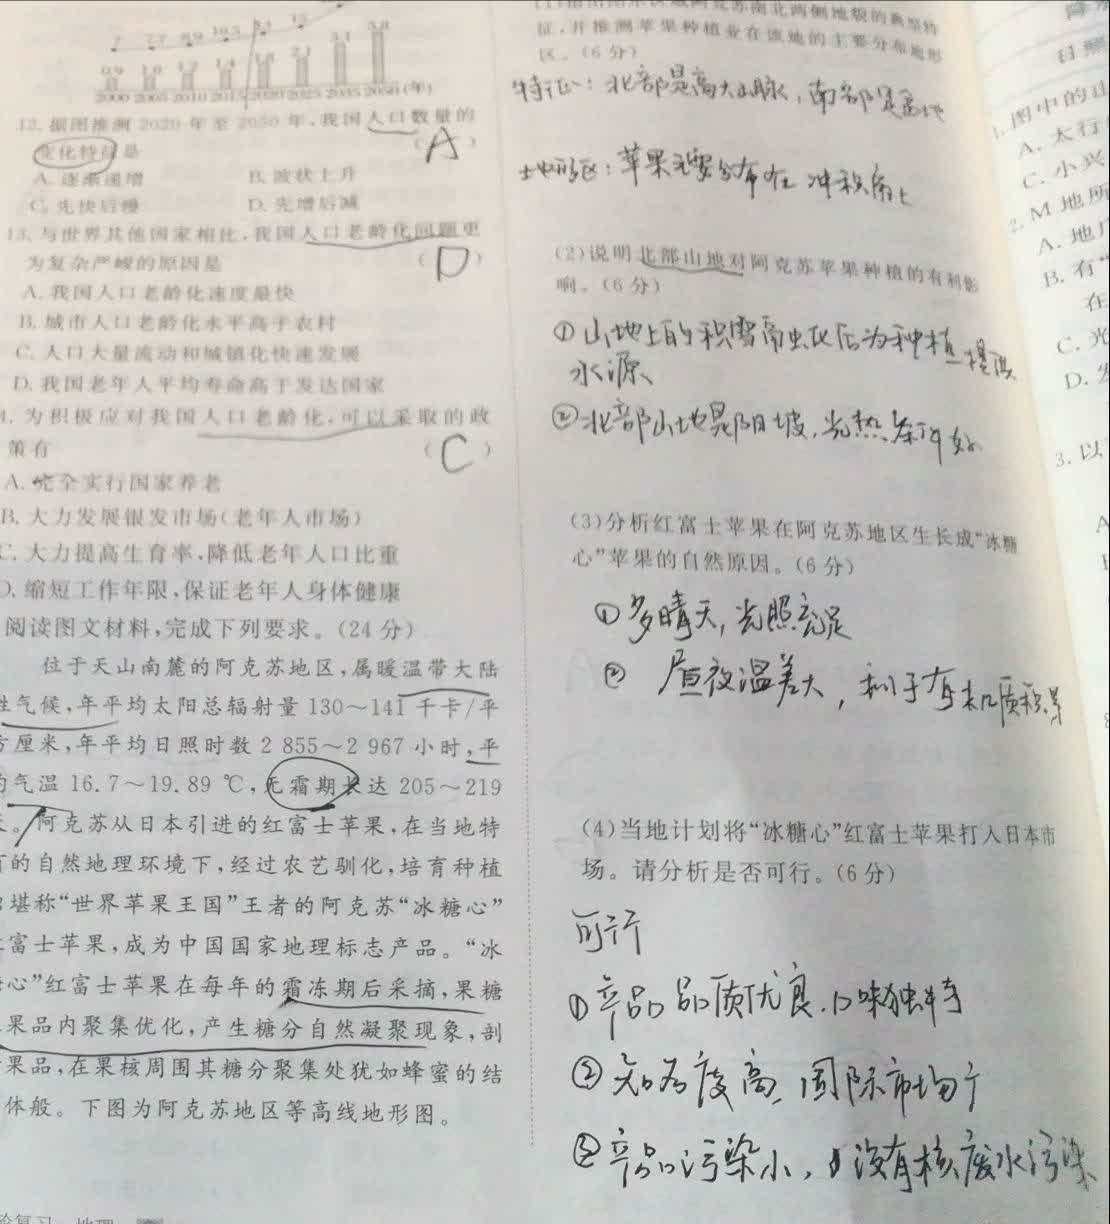 0.9 1.0 1.2 1.4 1.8 2.1 3.1 3.8
2000 2005 2010 2015 2020 2025 2035 2050(年)
12. 据图推测 2020 年至 2050 年,我国人口数量的
变化特点是 ( A )
A. 逐渐递增 B. 波状上升
C. 先快后慢 D. 先增后减
13. 与世界其他国家相比,我国人口老龄化问题更
为复杂严峻的原因是 ( D )
A. 我国人口老龄化速度最快
B. 城市人口老龄化水平高于农村
C. 人口大量流动和城镇化快速发展
D. 我国老年人平均寿命高于发达国家
为积极应对我国人口老龄化,可以采取的政
策有 ( C )
A. 完全实行国家养老
B. 大力发展银发市场(老年人市场)
C. 大力提高生育率,降低老年人口比重
D. 缩短工作年限,保证老年人身体健康
阅读图文材料,完成下列要求。(24 分)
位于天山南麓的阿克苏地区,属暖温带大陆
性气候,年平均太阳总辐射量 130～141 千卡/平
方厘米,年平均日照时数 2 855～2 967 小时,平
均气温 16.7～19.89 ℃,无霜期长达 205～219
天。阿克苏从日本引进的红富士苹果,在当地特
有的自然地理环境下,经过农艺驯化,培育种植
堪称“世界苹果王国”王者的阿克苏“冰糖心”
富士苹果,成为中国国家地理标志产品。“冰
心”红富士苹果在每年的霜冻期后采摘,果糖
果品内聚集优化,产生糖分自然凝聚现象,剖
果品,在果核周围其糖分聚集处犹如蜂蜜的结
体般。下图为阿克苏地区等高线地形图。
阿克苏南北两侧地貌的典型特
征,并推测苹果种植业在该地的主要分布地形
区。(6 分)
特征:北部是高大山脉,南部是盆地
地形区:苹果主要分布在冲积扇上
(2)说明北部山地对阿克苏苹果种植的有利影
响。(6 分)
① 山地上的积雪融化后为种植提供
水源
② 北部山地是阳坡,光热条件好
(3)分析红富士苹果在阿克苏地区生长成“冰糖
心”苹果的自然原因。(6 分)
① 多晴天,光照充足
② 昼夜温差大,利于有机质积累
(4)当地计划将“冰糖心”红富士苹果打入日本市
场。请分析是否可行。(6 分)
可行
① 产品品质优良,口味独特
② 知名度高,国际市场广
③ 产品污染小,没有核废水污染
1. 图中的山
A. 太行
C. 小兴
2. M 地所
A. 地
B. 有“
在
C. 光
D.
3. 以